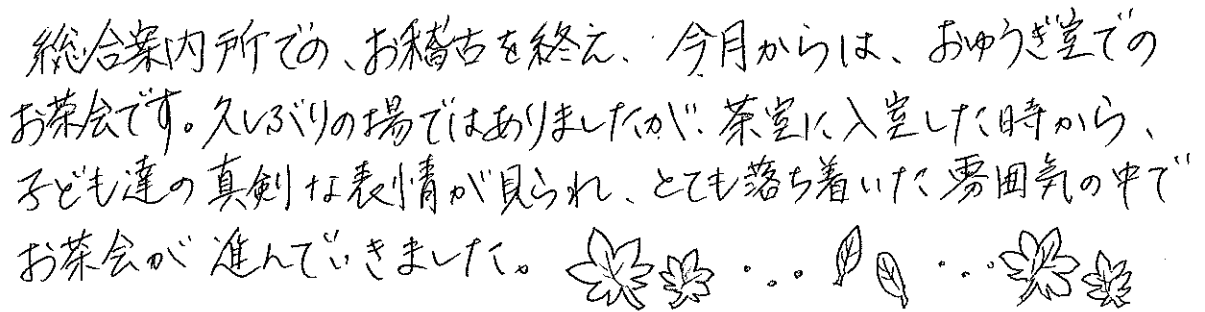 総合案内所での、お稽古を終え、今月からは、おゆうぎ室での
お茶会です。久しぶりの場ではありましたが、茶室に入室した時から、
子ども達の真剣な表情が見られ、とても落ち着いた雰囲気の中で
お茶会が進んでいきました。